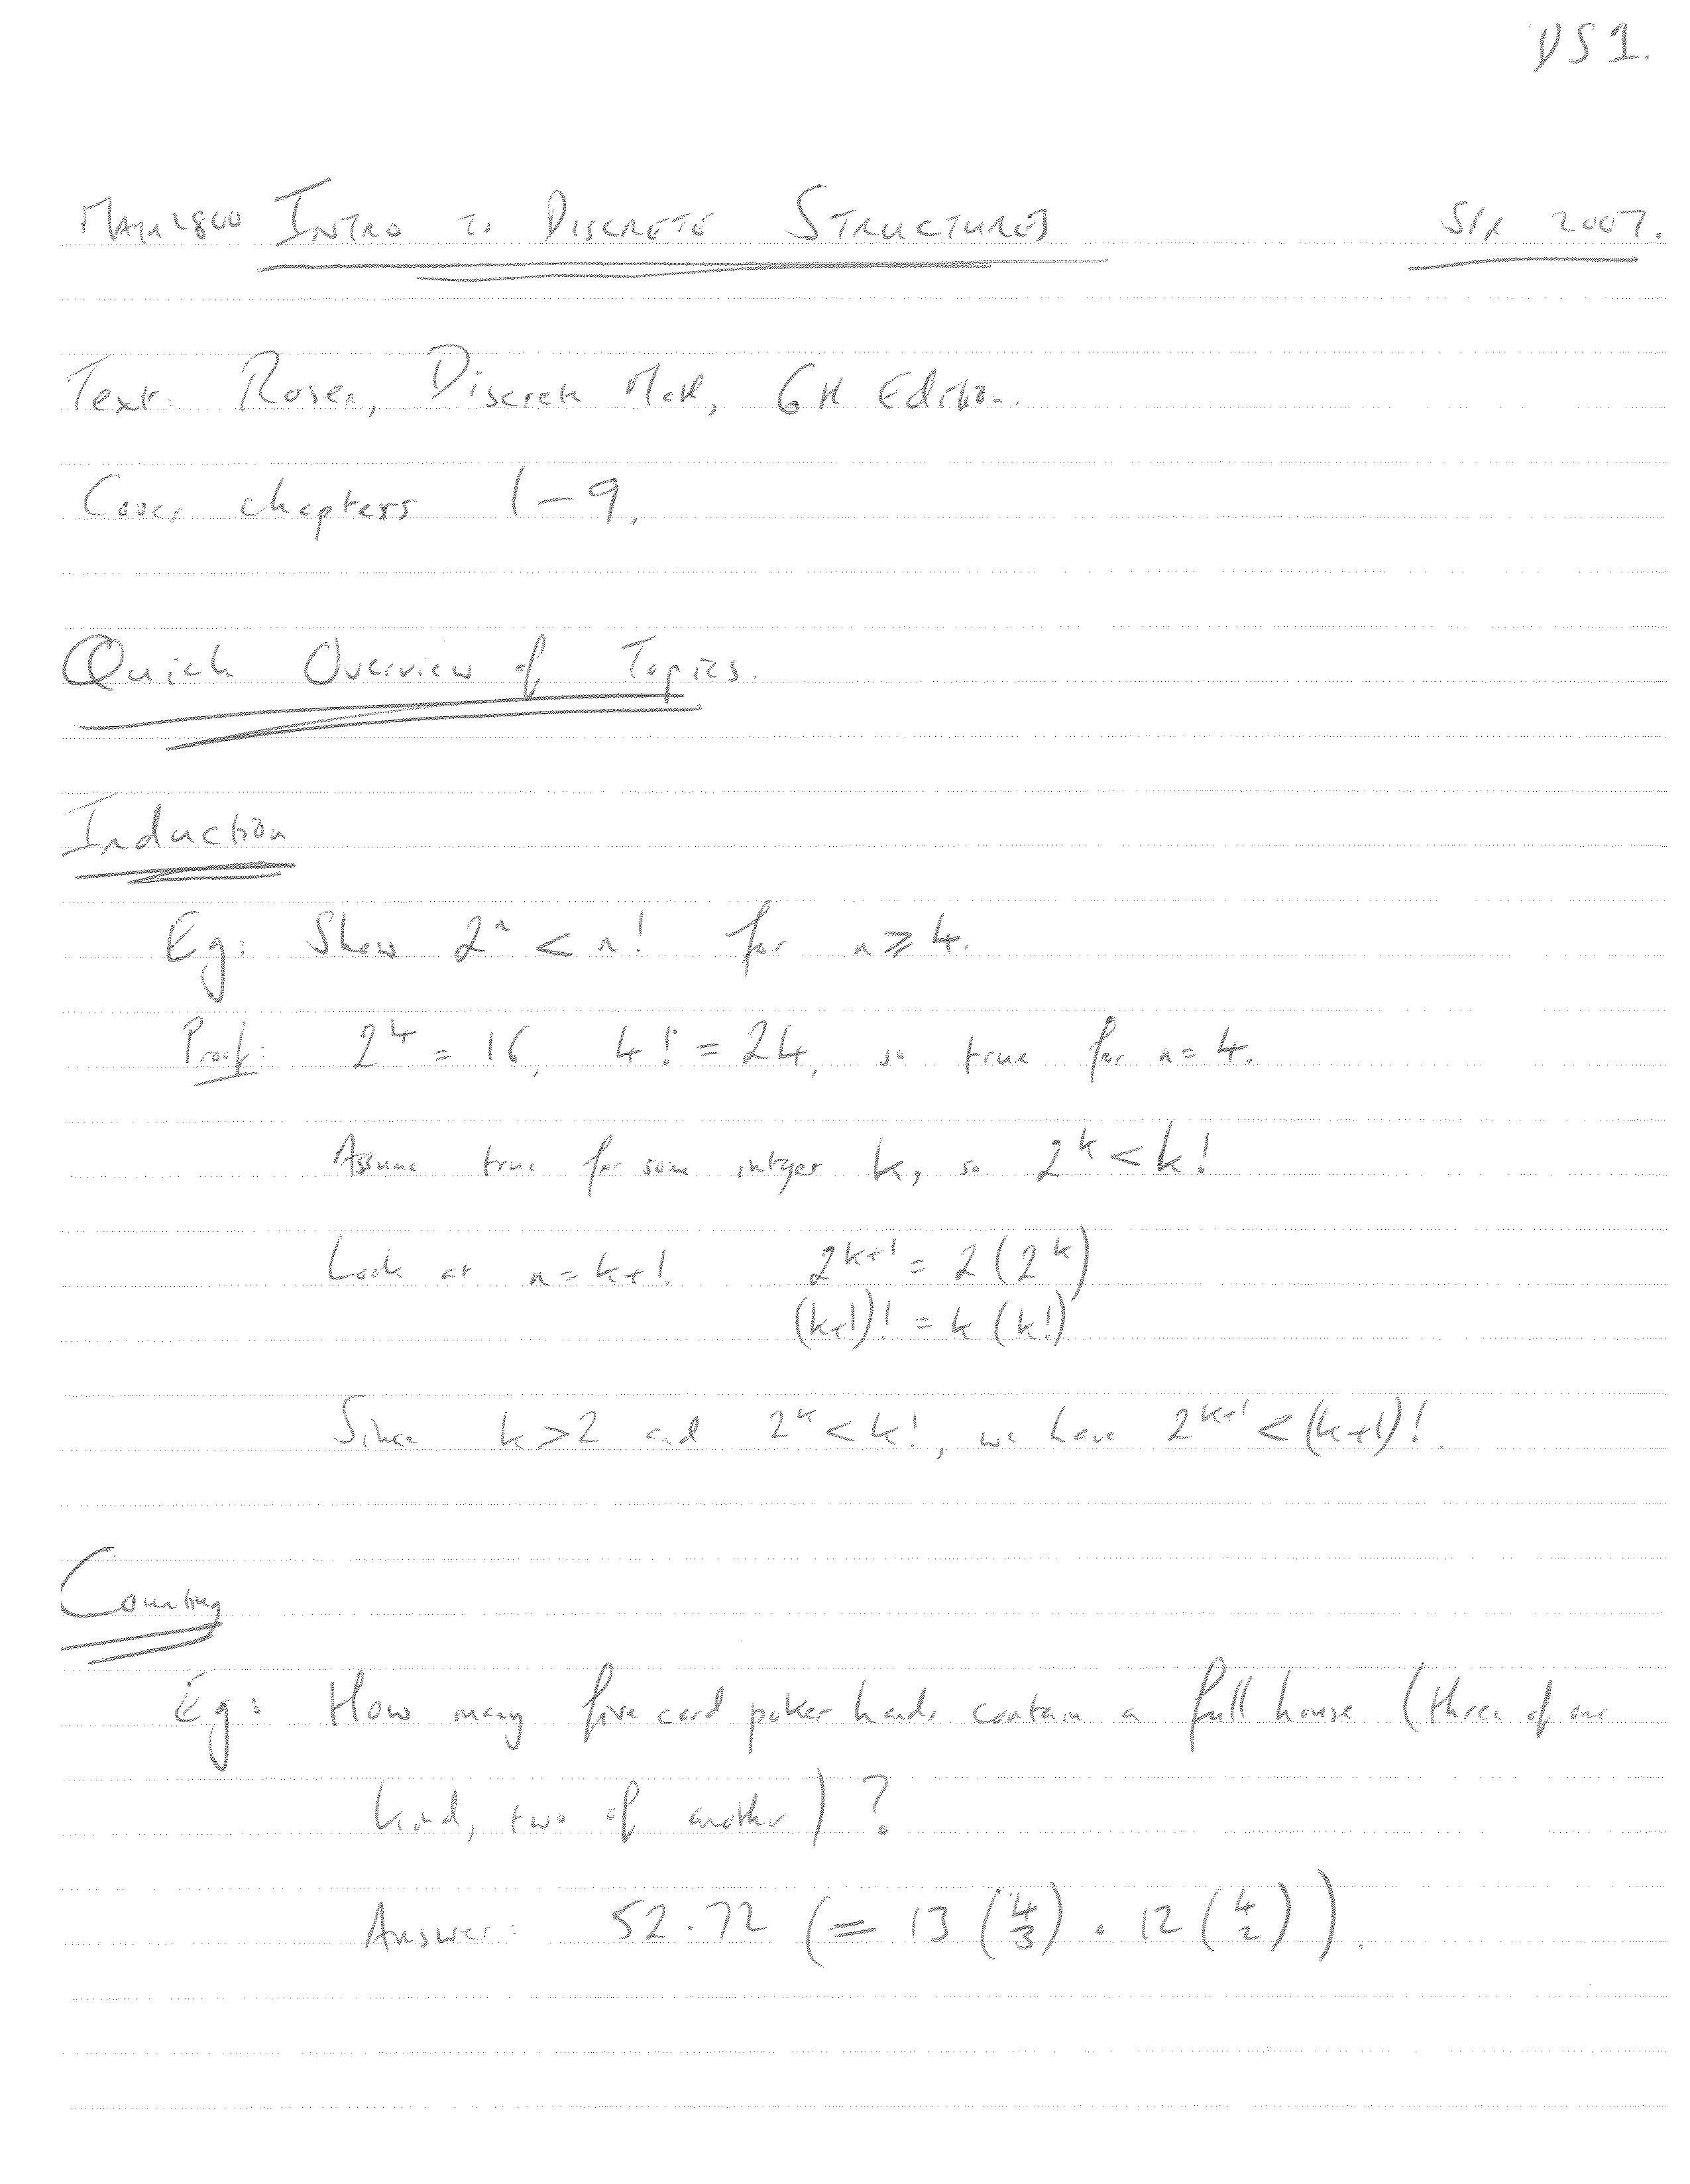 DS1.
MATH2800 INTRO TO DISCRETE STRUCTURES
2007.
Text: Rosen, Discrete Math, 6th Edition.
Cover chapters 1-9.
Quick Overview of Topics.
Induction
Eg: Show 2^n < n! for n ≥ 4.
Proof: 2^4 = 16, 4! = 24, so true for n=4.
Assume true for some integer k, so 2^k < k!
Look at n = k+1. 2^{k+1} = 2(2^k)
(k+1)! = k(k!)
Since k > 2 and 2^k < k!, we have 2^{k+1} < (k+1)!.
Counting
Eg: How many five card poker hands contain a full house (three of one
kind, two of another)?
Answer: 52·72 (= 13 (4 3) · 12 (4 2)).